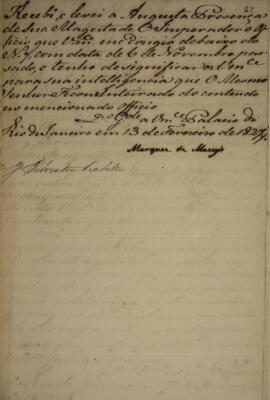 27
Recebi, e levei á Augusta Presença
de Sua Magestade O Imperador o Of-
ficio que Vmce me dirigio debaixo do
Nº com data de 6 de Novembro pas-
sado, e tenho de significar a Vmce
para sua intelligencia que O Mesmo
Senhor Ficou Inteirado do contendo
no mencionado officio.
Ds Gde a Vmce Palacio do
Rio de Janeiro em 13 de Fevereiro de 1827.
Marquez de